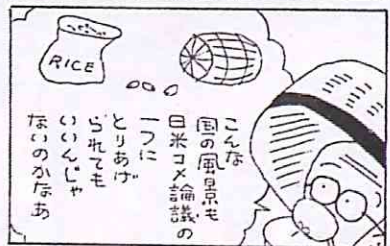 RICE
こんな
国の風景も
日米コメ論議の
一つに
とりあげ
られても
いいんじゃ
ないのかなあ